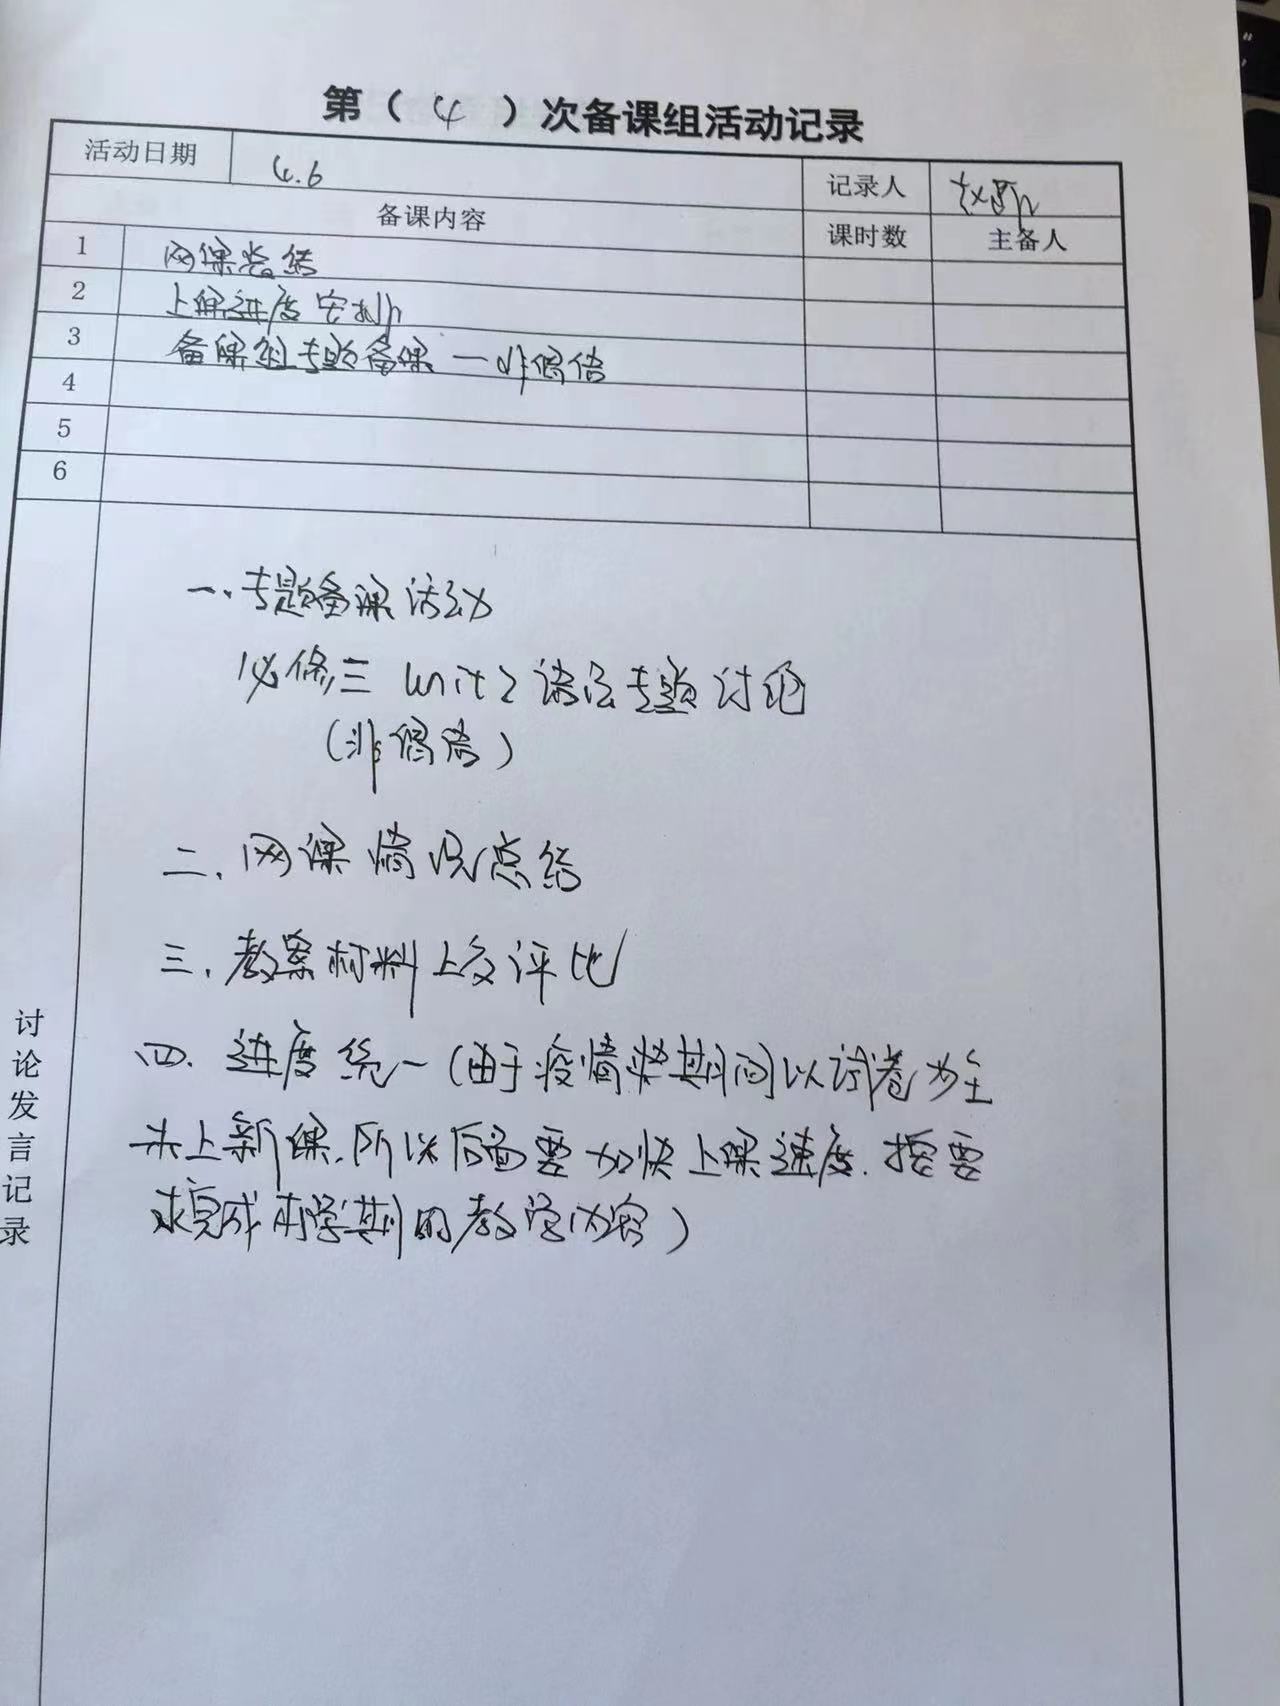 第（ 4 ）次备课组活动记录
活动日期 4.6 记录人 赵
备课内容 课时数 主备人
1 网课总结
2 上课进度安排
3 备课组专题备课 — 非谓语
4
5
6
讨论发言记录
一、专题备课活动
必修三 Unit 2 语法专题讨论
（非谓语）
二、网课情况总结
三、教案材料上交评比
四、进度统一（由于疫情 期间以试卷为主
未上新课，所以后面要加快上课速度，按要
求完成本学期的教学内容）